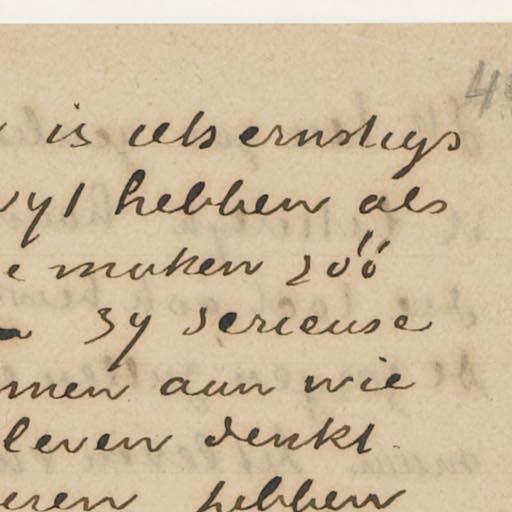 is iets ernstigs
hebben als
e maken zóó
zy serieuse
men aan wie
leven denkt.
eren hebben